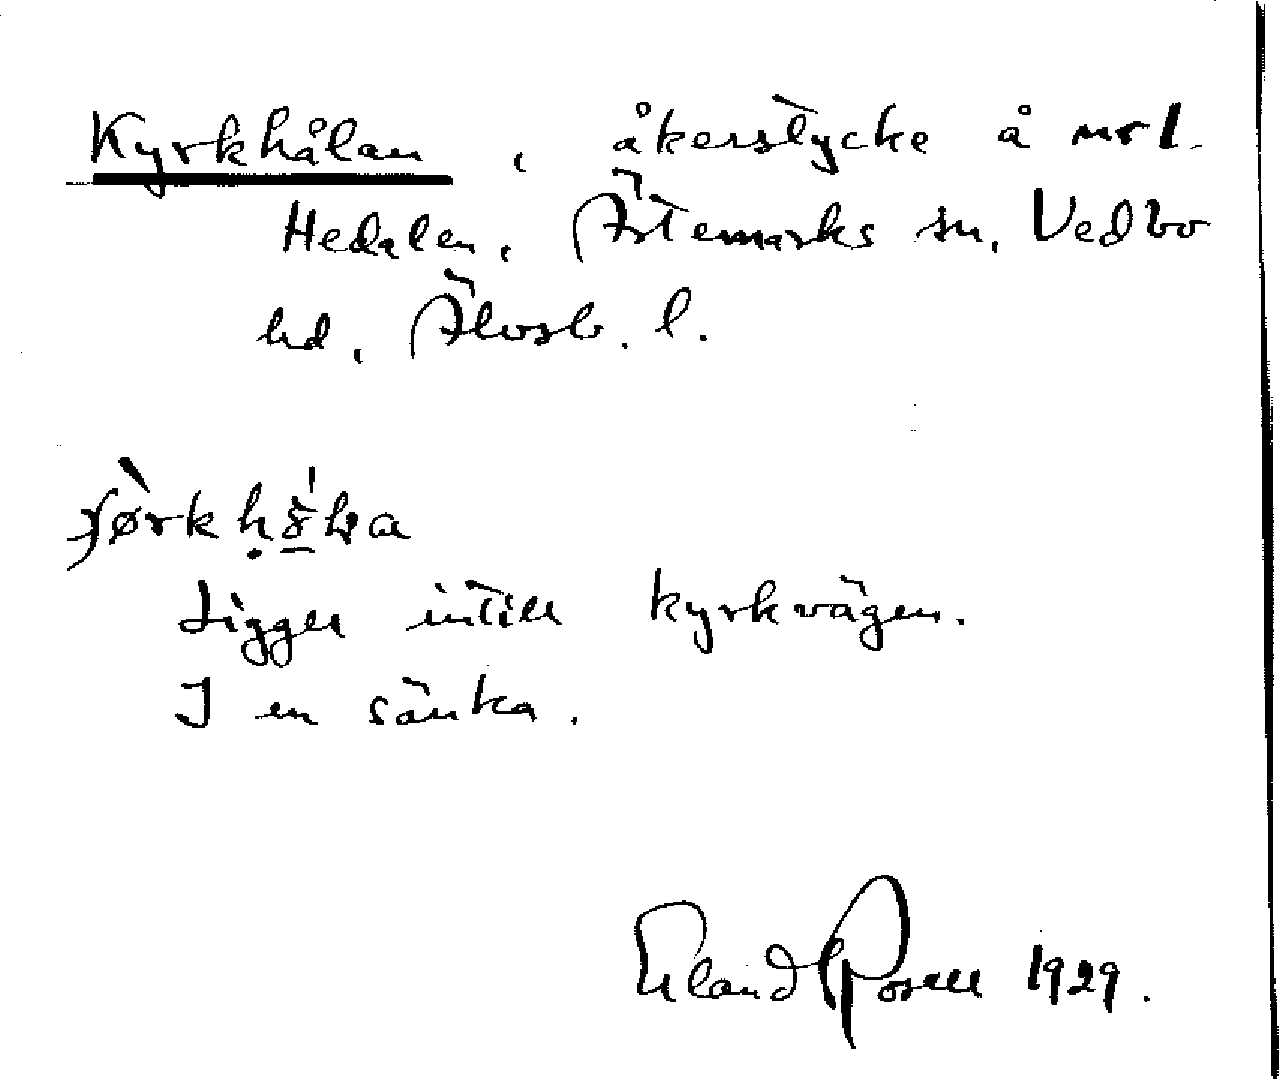 Kyrkhålan, åkerstycke å nr 1
Hedalen, Ärtemarks sn, Vedbo
hd, Älvsb. l.
Ligger intill kyrkvägen.
I en sänka.
Erland Rosell 1929.